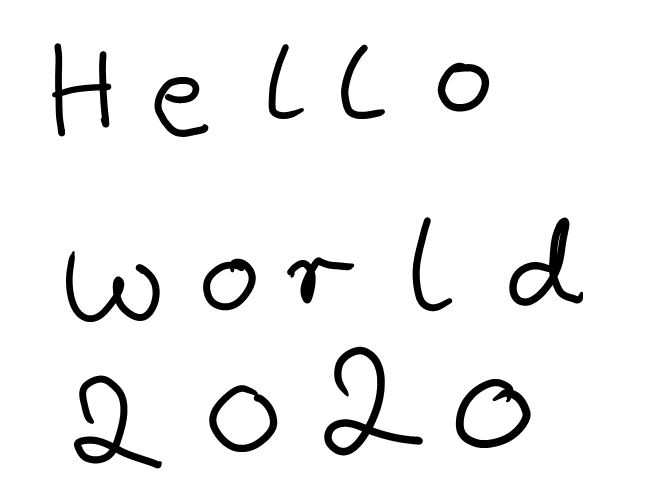 Hello
world
2020